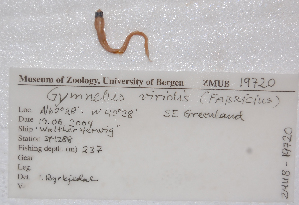 Museum of Zoology, University of Bergen ZMUB 19720
Gymnelus viridis (Fabricius)
Loc SE Greenland
Date 19.06.2004
Ship "Walther Herwig"
Station
Fishing depth (m) 237
Gear
Leg
Det
ZMUB - 19720